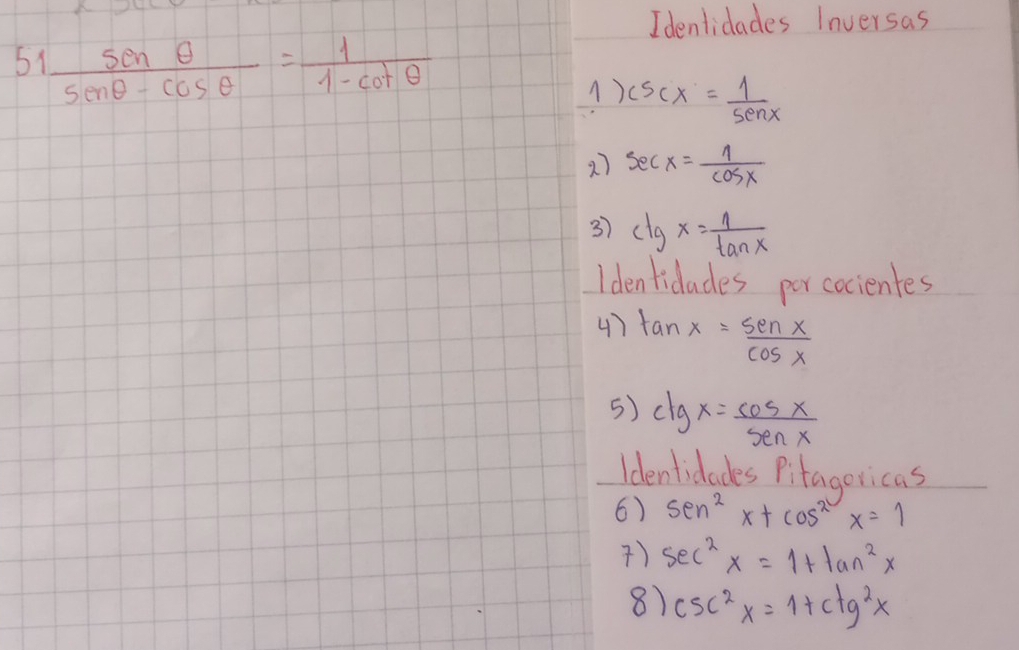 51 sen θ / senθ - cos θ = 1 / 1 - cot θ
Identidades Inversas
1) csc x = 1 / senx
2) sec x = 1 / cosx
3) ctg x = 1 / tanx
Identidades por cocientes
4) tan x = sen x / cos x
5) ctg x = cos x / sen x
Identidades Pitagoricas
6) sen² x + cos² x = 1
7) sec² x = 1 + tan² x
8) csc² x = 1 + ctg² x